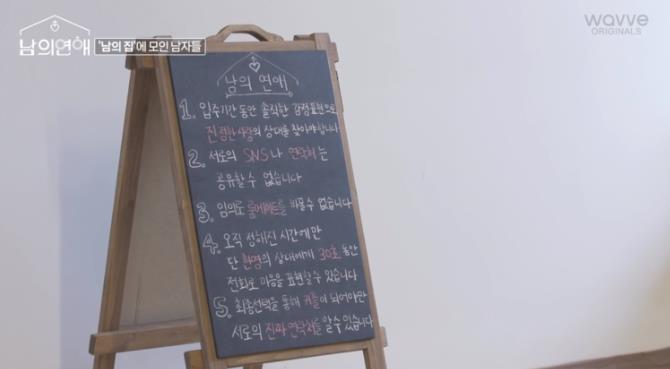 남의연애
'남의 집'에 모인 남자들
wavve
ORIGINALS
남의 연애
1. 입주기간 동안 솔직한 감정표현으로
진정한 사랑의 상대를 찾아야합니다
2. 서로의 SNS나 연락처는
공유할 수 없습니다
3. 임의로 룸메이트를 바꿀 수 없습니다
4. 오직 정해진 시간에만
단 한명의 상대에게 30초 동안
전화로 마음을 표현할 수 있습니다
5. 최종선택을 통해 커플이 되어야만
서로의 진짜 연락처를 알 수 있습니다